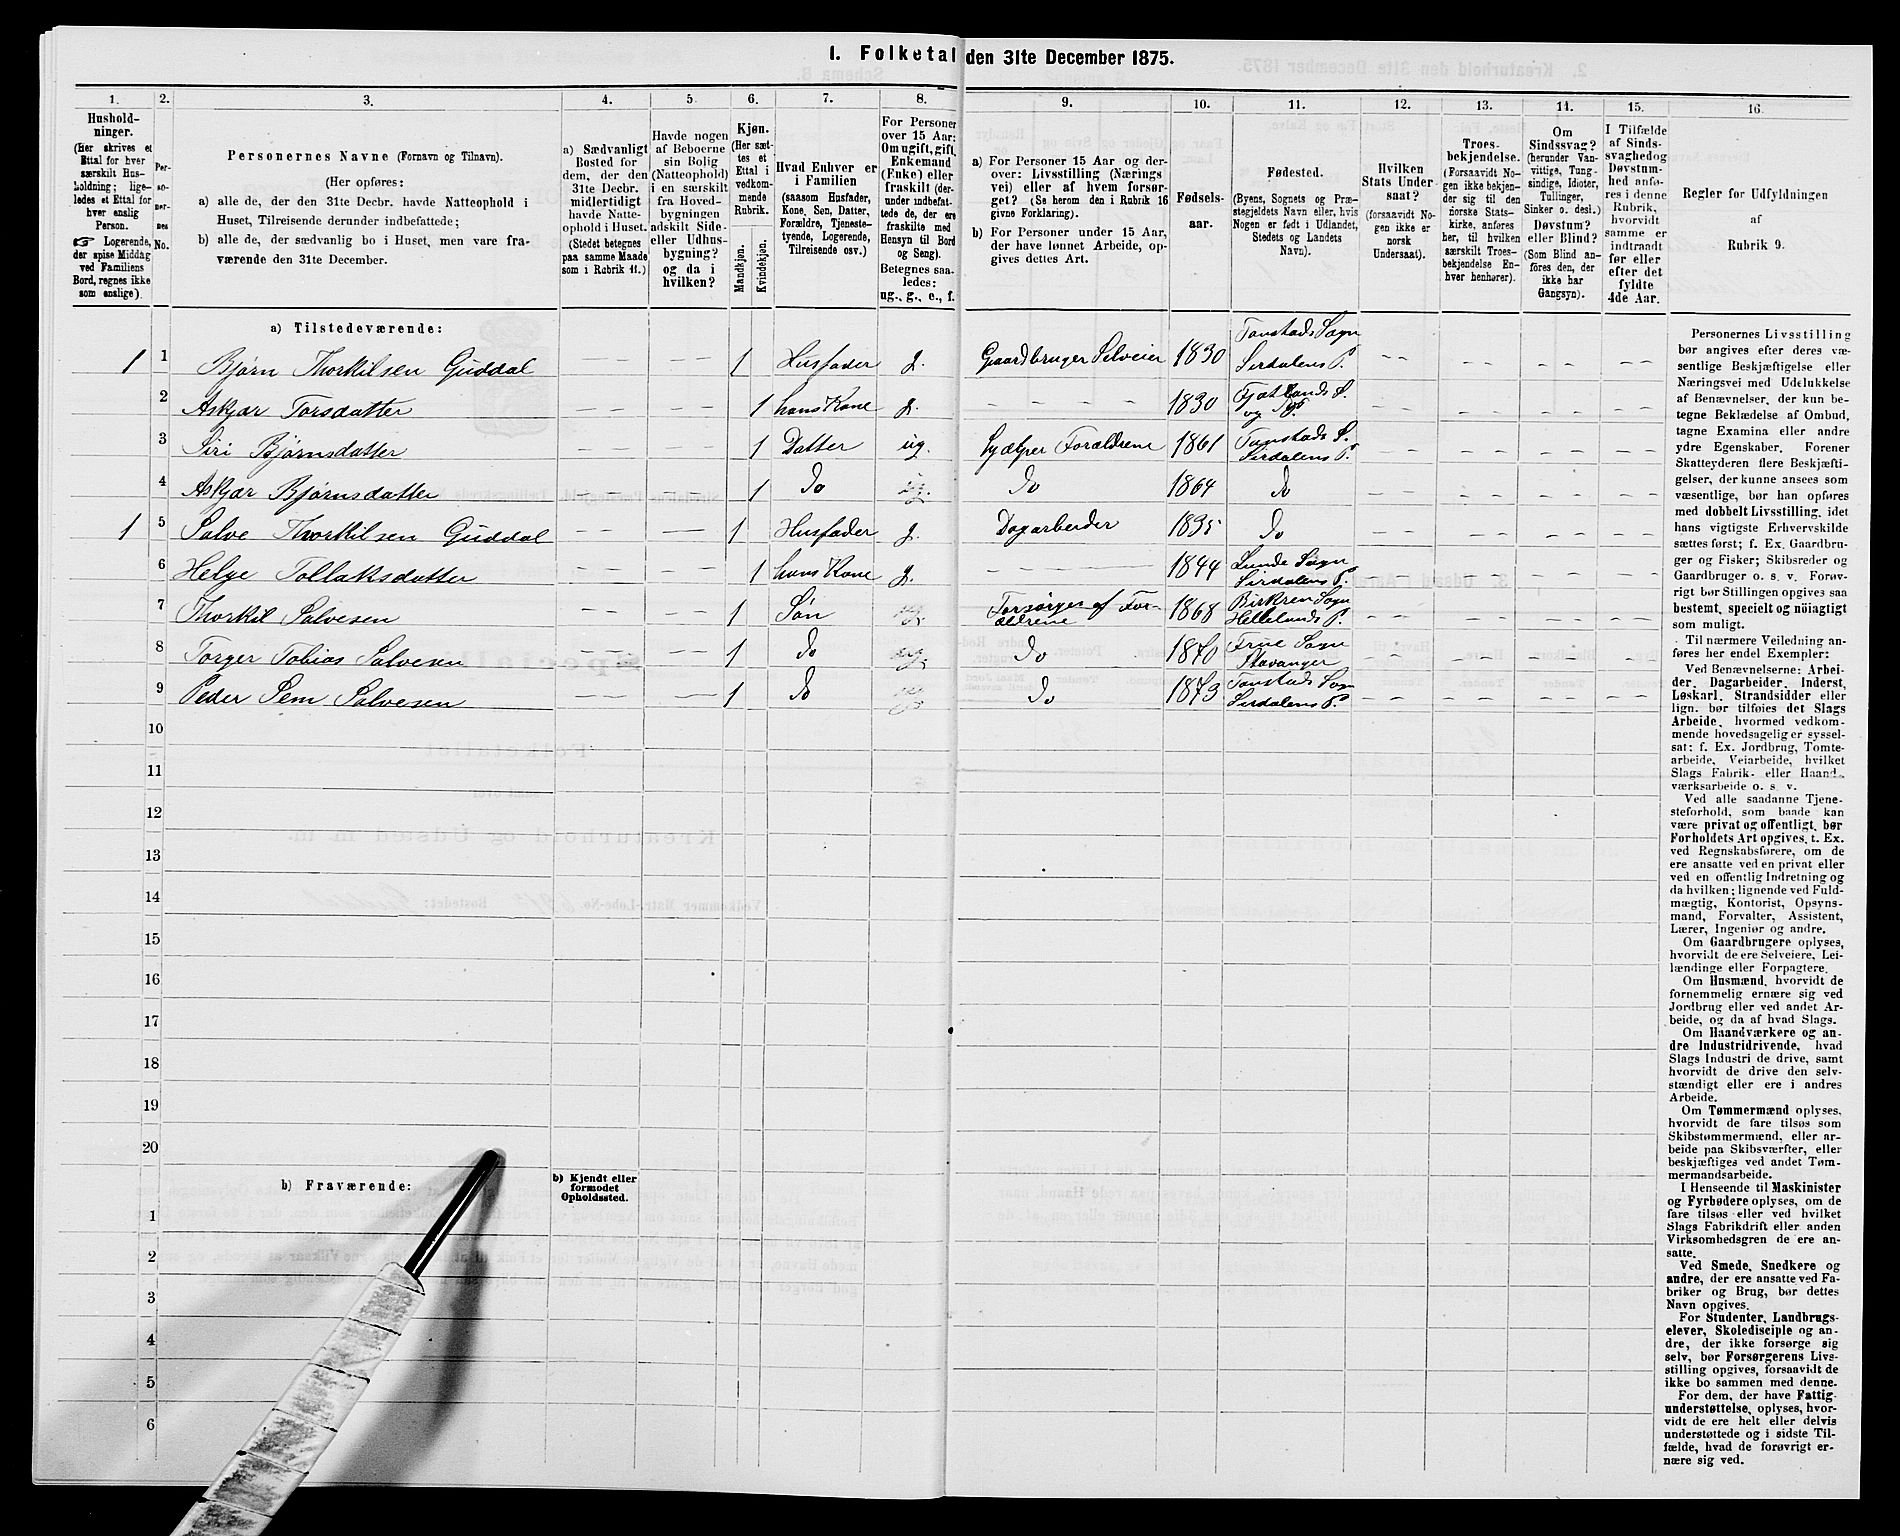 I. Folketal den 31te December 1875.
1. 2. 3. 4. 5. 6. 7. 8. 9. 10. 11. 12. 13. 14. 15. 16.
Hushold-
ninger.
(Her skrives et
Ettal for hver
særskilt Hus-
holdning; lige-
ledes et Ettal for
hver enslig
Person.
☞ Logerende,
der spise Middag
ved Familiens
Bord, regnes ikke
som enslige).
Per-
so-
ner-
nes
No.
Personernes Navne (Fornavn og Tilnavn).
(Her opføres:
a) alle de, der den 31te Decbr. havde Natteophold i
Huset, Tilreisende derunder indbefattede;
b) alle de, der sædvanlig bo i Huset, men vare fra-
værende den 31te December.
a) Sædvanligt
Bosted for
dem, der den
31te Decbr.
midlertidigt
havde Natte-
ophold i Huset.
(Stedet betegnes
paa samme Maade
som i Rubrik 11.)
Havde nogen
af Beboerne
sin Bolig
(Natteophold)
i en særskilt
fra Hoved-
bygningen
adskilt Side-
eller Udhus-
bygning?
og da i
hvilken?
Kjøn.
(Her sæt-
tes et
Ettal i
vedkom-
mende
Rubrik.
Mandkjøn.
Kvindekjøn.
Hvad Enhver er
i Familien
(saasom Husfader,
Kone, Søn, Datter,
Forældre, Tjeneste-
tyende, Logerende,
Tilreisende osv.)
For Personer
over 15 Aar:
Om ugift, gift,
Enkemand
(Enke) eller
fraskilt (der-
under indbefat-
tede de, der ere
fraskilte med
Hensyn til Bord
og Seng).
Betegnes saa-
ledes:
ug., g., e., f.
a) For Personer 15 Aar og der-
over: Livsstilling (Nærings
vei) eller af hvem forsør-
get? (Se herom den i Rubrik 16
givne Forklaring).
b) For Personer under 15 Aar,
der have lønnet Arbeide, op-
gives dettes Art.
Fødsels-
aar.
Fødested.
(Byens, Sognets og Præ-
stegjeldets Navn eller, hvis
Nogen er født i Udlandet,
Stedets og Landets
Navn).
Hvilken
Stats Under
saat?
(forsaavidt No-
gen ikke er
norsk
Undersaat).
Troes-
bekjendelse.
(Forsaavidt No
gen ikke bekjen-
der sig til den
norske Stats-
kirke, anføres
her, til hvilken
særskilt Troes-
bekjendelse En-
hver henhører).
Om
Sindssvag?
(herunder Van-
vittige, Tung-
sindige, Idioter,
Tullinger,
Sinker o. desl.)
Døvstum?
eller Blind?
(Som Blind an-
føres den, der
ikke har
Gangsyn).
I Tilfælde
af Sinds-
svaghed og
Døvstum-
hed anfø-
res i denne
Rubrik,
hvorvidt
samme er
indtraadt
før eller
efter det
fyldte
4de Aar.
Regler for Udfyldningen
af
Rubrik 9.
a) Tilstedeværende:
1 1 Bjørn Thorkilsen Guddal — — — — 1 Husfader g. Gaardbruger Selveier 1830 Tonstads Sogn Sirdalens P.
2 Askjær Torsdatter 1 hans Kone g. 1830
3 Siri Bjørnsdatter 1 Datter ug. hjælper Forældrene 1861 Tonstads S. Sirdalens P.
4 Askjær Bjørnsdatter 1 do ug. do 1864 do
1 5 Salve Thorkilsen Guddal 1 Husfader g. Dagarbeider 1835 do
6 Helge Tollaksdatter 1 hans Kone g. 1844 Lunde Sogn Sirdalens P.
7 Thorkil Salvesen 1 Søn ug. Forsørges af For- ældrene 1868 Birkrem Sogn Hellelands P.
8 Torger Tobias Salvesen 1 do ug. do 1870 Frue Sogn Stavanger
9 Peder Sem Salvesen 1 do ug. do 1873 Tonstads Sogn Sirdalens P.
10
11
12
13
14
15
16
17
18
19
20
b) Fraværende:
b) Kjendt eller
formodet
Opholdssted.
1
2
3
4
5
6
Personernes Livsstilling
bør angives efter deres væ-
sentlige Beskjæftigelse eller
Næringsvei med Udelukkelse
af Benævnelser, der kun be-
tegne Beklædelse af Ombud,
tagne Examina eller andre
ydre Egenskaber. Forener
Skatteyderen flere Beskjæfti-
gelser, der kunne ansees som
væsentlige, bør han opføres
med dobbelt Livsstilling, idet
hans vigtigste Erhvervskilde
sættes først; f. Ex. Gaardbru-
ger og Fisker; Skibsreder og
Gaardbruger o. s. v. Forøv-
rigt bør Stillingen opgives saa
bestemt, specielt og nöiagtigt
som muligt.
Til nærmere Veiledning an-
føres her endel Exempler:
Ved Benævnelserne: Arbei-
der, Dagarbeider, Inderst,
Løskarl, Strandsidder eller
lign. bør tilføies det Slags
Arbeide, hvormed vedkom-
mende hovedsagelig er syssel-
sat; f. Ex. Jordbrug, Tomte-
arbeide, Veiarbeide, hvilket
Slags Fabrik- eller Haand-
værksarbeide o. s. v.
Ved alle saadanne Tjene-
steforhold, som baade kan
være privat og offentligt, bør
Forholdets Art opgives, t. Ex.
ved Regnskabsførere, om de
ere ansatte ved en privat eller
ved en offentlig Indretning og
da hvilken; lignende ved Fuld-
mægtig, Kontorist, Opsyns-
mand, Forvalter, Assistent,
Lærer, Ingeniør og andre.
Om Gaardbrugere oplyses,
hvorvidt de ere Selveiere, Lei-
lændinge eller Forpagtere.
Om Husmænd, hvorvidt de
fornemmelig ernære sig ved
Jordbrug eller ved andet Ar-
beide, og da af hvad Slags.
Om Haandværkere og an-
dre Industridrivende, hvad
Slags Industri de drive, samt
hvorvidt de drive den selv-
stændigt eller ere i andres
Arbeide.
Om Tømmermænd oplyses,
hvorvidt de fare tilsøs som
Skibstømmermænd, eller ar-
beide paa Skibsværfter, eller
beskjæftiges ved andet Tøm-
mermandsarbeide.
I Henseende til Maskinister
og Fyrbødere oplyses, om de
fare tilsøs eller ved hvilket
Slags Fabrikdrift eller anden
Virksomhedsgren de ere an-
satte.
Ved Smede, Snedkere og
andre, der ere ansatte ved Fa-
briker og Brug, bør dettes
Navn opgives.
For Studenter, Landbrugs-
elever, Skoledisciple og an-
dre, der ikke forsørge sig
selv, bør Forsørgerens Livs-
stilling opgives, forsaavidt de
ikke bo sammen med denne.
For dem, der have Fattig-
understøttelse, oplyses, hvor-
vidt de ere helt eller delvis
understøttede og i sidste Til-
fælde, hvad de forøvrigt er-
nære sig ved.